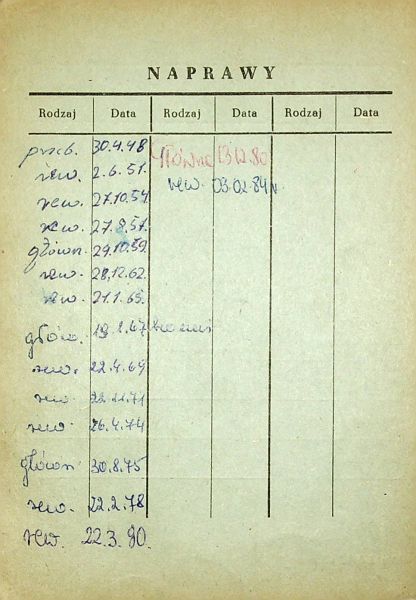 NAPRAWY
Rodzaj Data Rodzaj Data Rodzaj Data
30.4.48 główna 13.12.80
rew. 2.6.51. rew. 03.02.84
rew. 27.10.54
rew. 27.9.57.
główn. 29.10.59
rew. 28.12.62.
rew. 21.1.65.
głów. 19.1.67
rew. 22.4.69
rew. 22.11.71
rew. 26.4.74
główn 30.8.75
rew. 22.2.78
rew. 22.3.80.